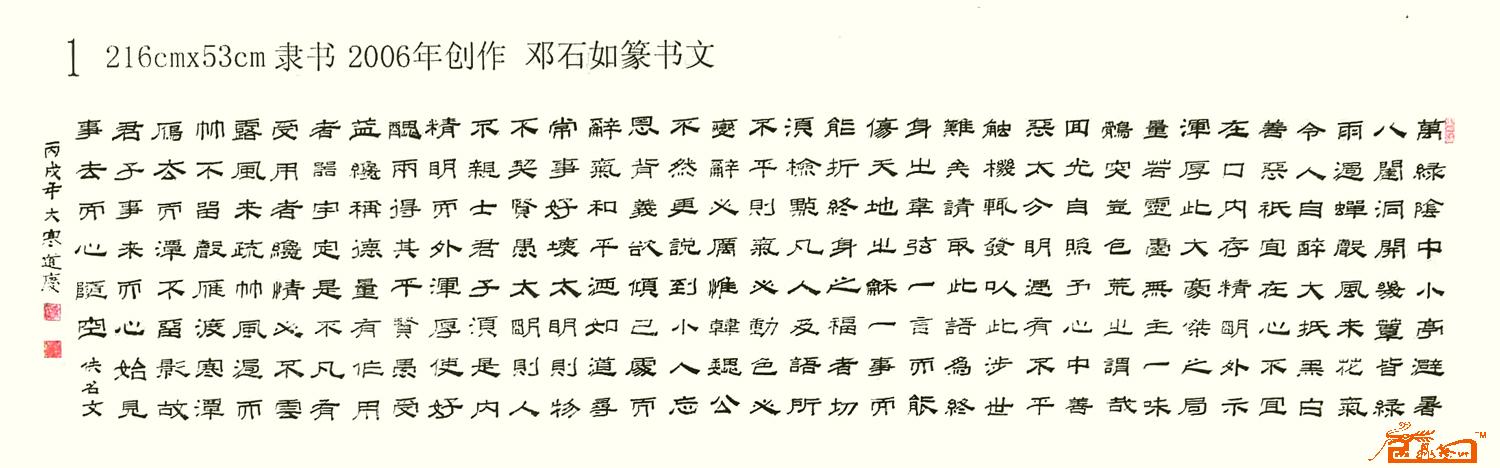 1 216cmx53cm 隶书 2006年创作 邓石如篆书文
萬綠陰中小亭避暑
八闥洞開幾簟皆綠
雨過蟬聲風來花氣
令人自醉大抵黑白
善惡祇宜在心不宜
在口内存精明外示
渾厚此大豪傑之局
量若靈臺無主一味
鶻突豈包荒之謂哉
回光自照予心中善
惡太分明遇有不平
觸機輒發以此步世
難矣請取此語爲終
身之韋弦一言而能
傷天地之龢一事而
能折終身之福者切
須檢點凡人及語所
不平則氣必動色必
變辭必厲惟韓魏公
不然更說到小人忘
恩背義欲傾己處而
辭氣和平迺如道尋
常事好壞太明則物
不契賢愚太明則人
不親士君子須是内
精明而外渾厚使好
醜兩得其平賢愚受
益纔稱德量有作用
者器宇定是不凡有
受用者纔情必不雲
露風来疏竹風過而
竹不留聲雁渡寒潭
雁去而潭不留影故
君子事来而心始見
事去而心隨空 佚名文
丙戌年大寒道慶